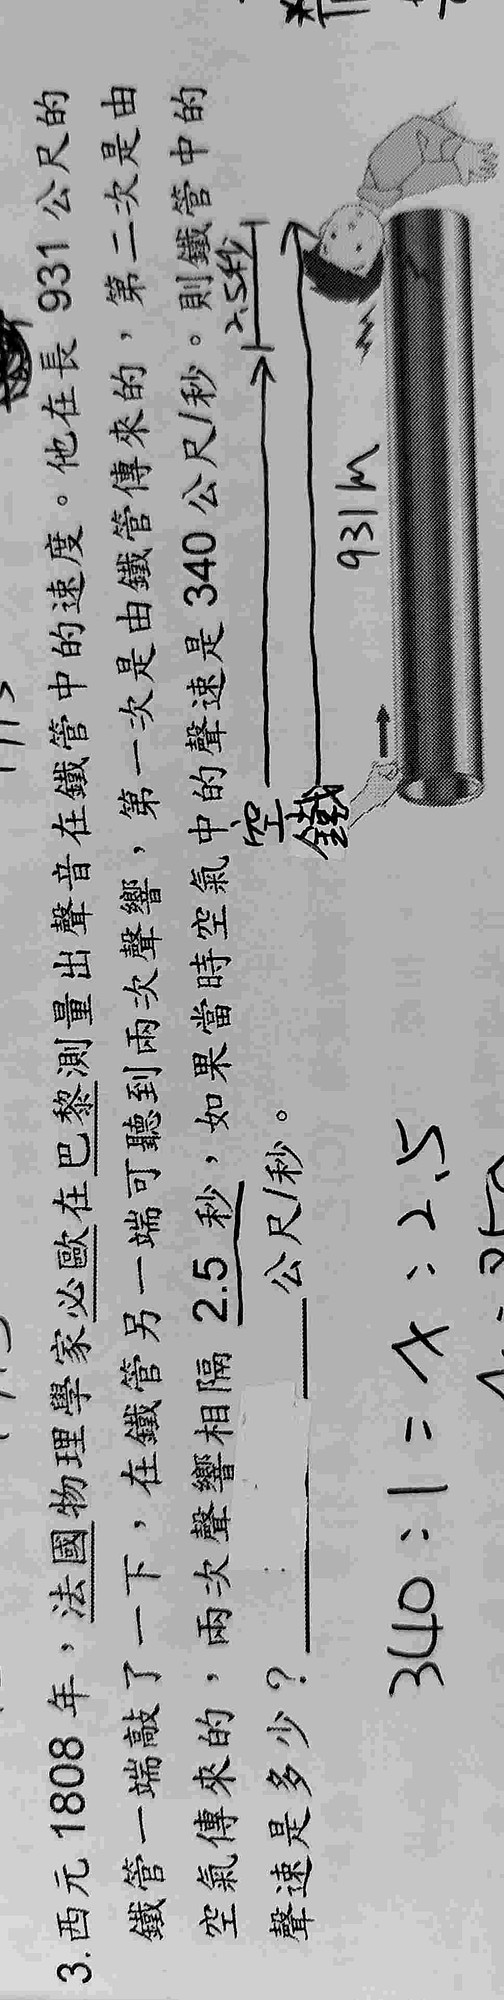 3.西元 1808 年，法國物理學家必歐在巴黎測量出聲音在鐵管中的速度。他在長 931 公尺的
鐵管一端敲了一下，在鐵管另一端可聽到兩次聲響，第一次是由鐵管傳來的，第二次是由
空氣傳來的，兩次聲響相隔 2.5 秒，如果當時空氣中的聲速是 340 公尺/秒。則鐵管中的
聲速是多少？ 公尺/秒。
空
2.5秒
鐵
931m
340:1=x:2.5